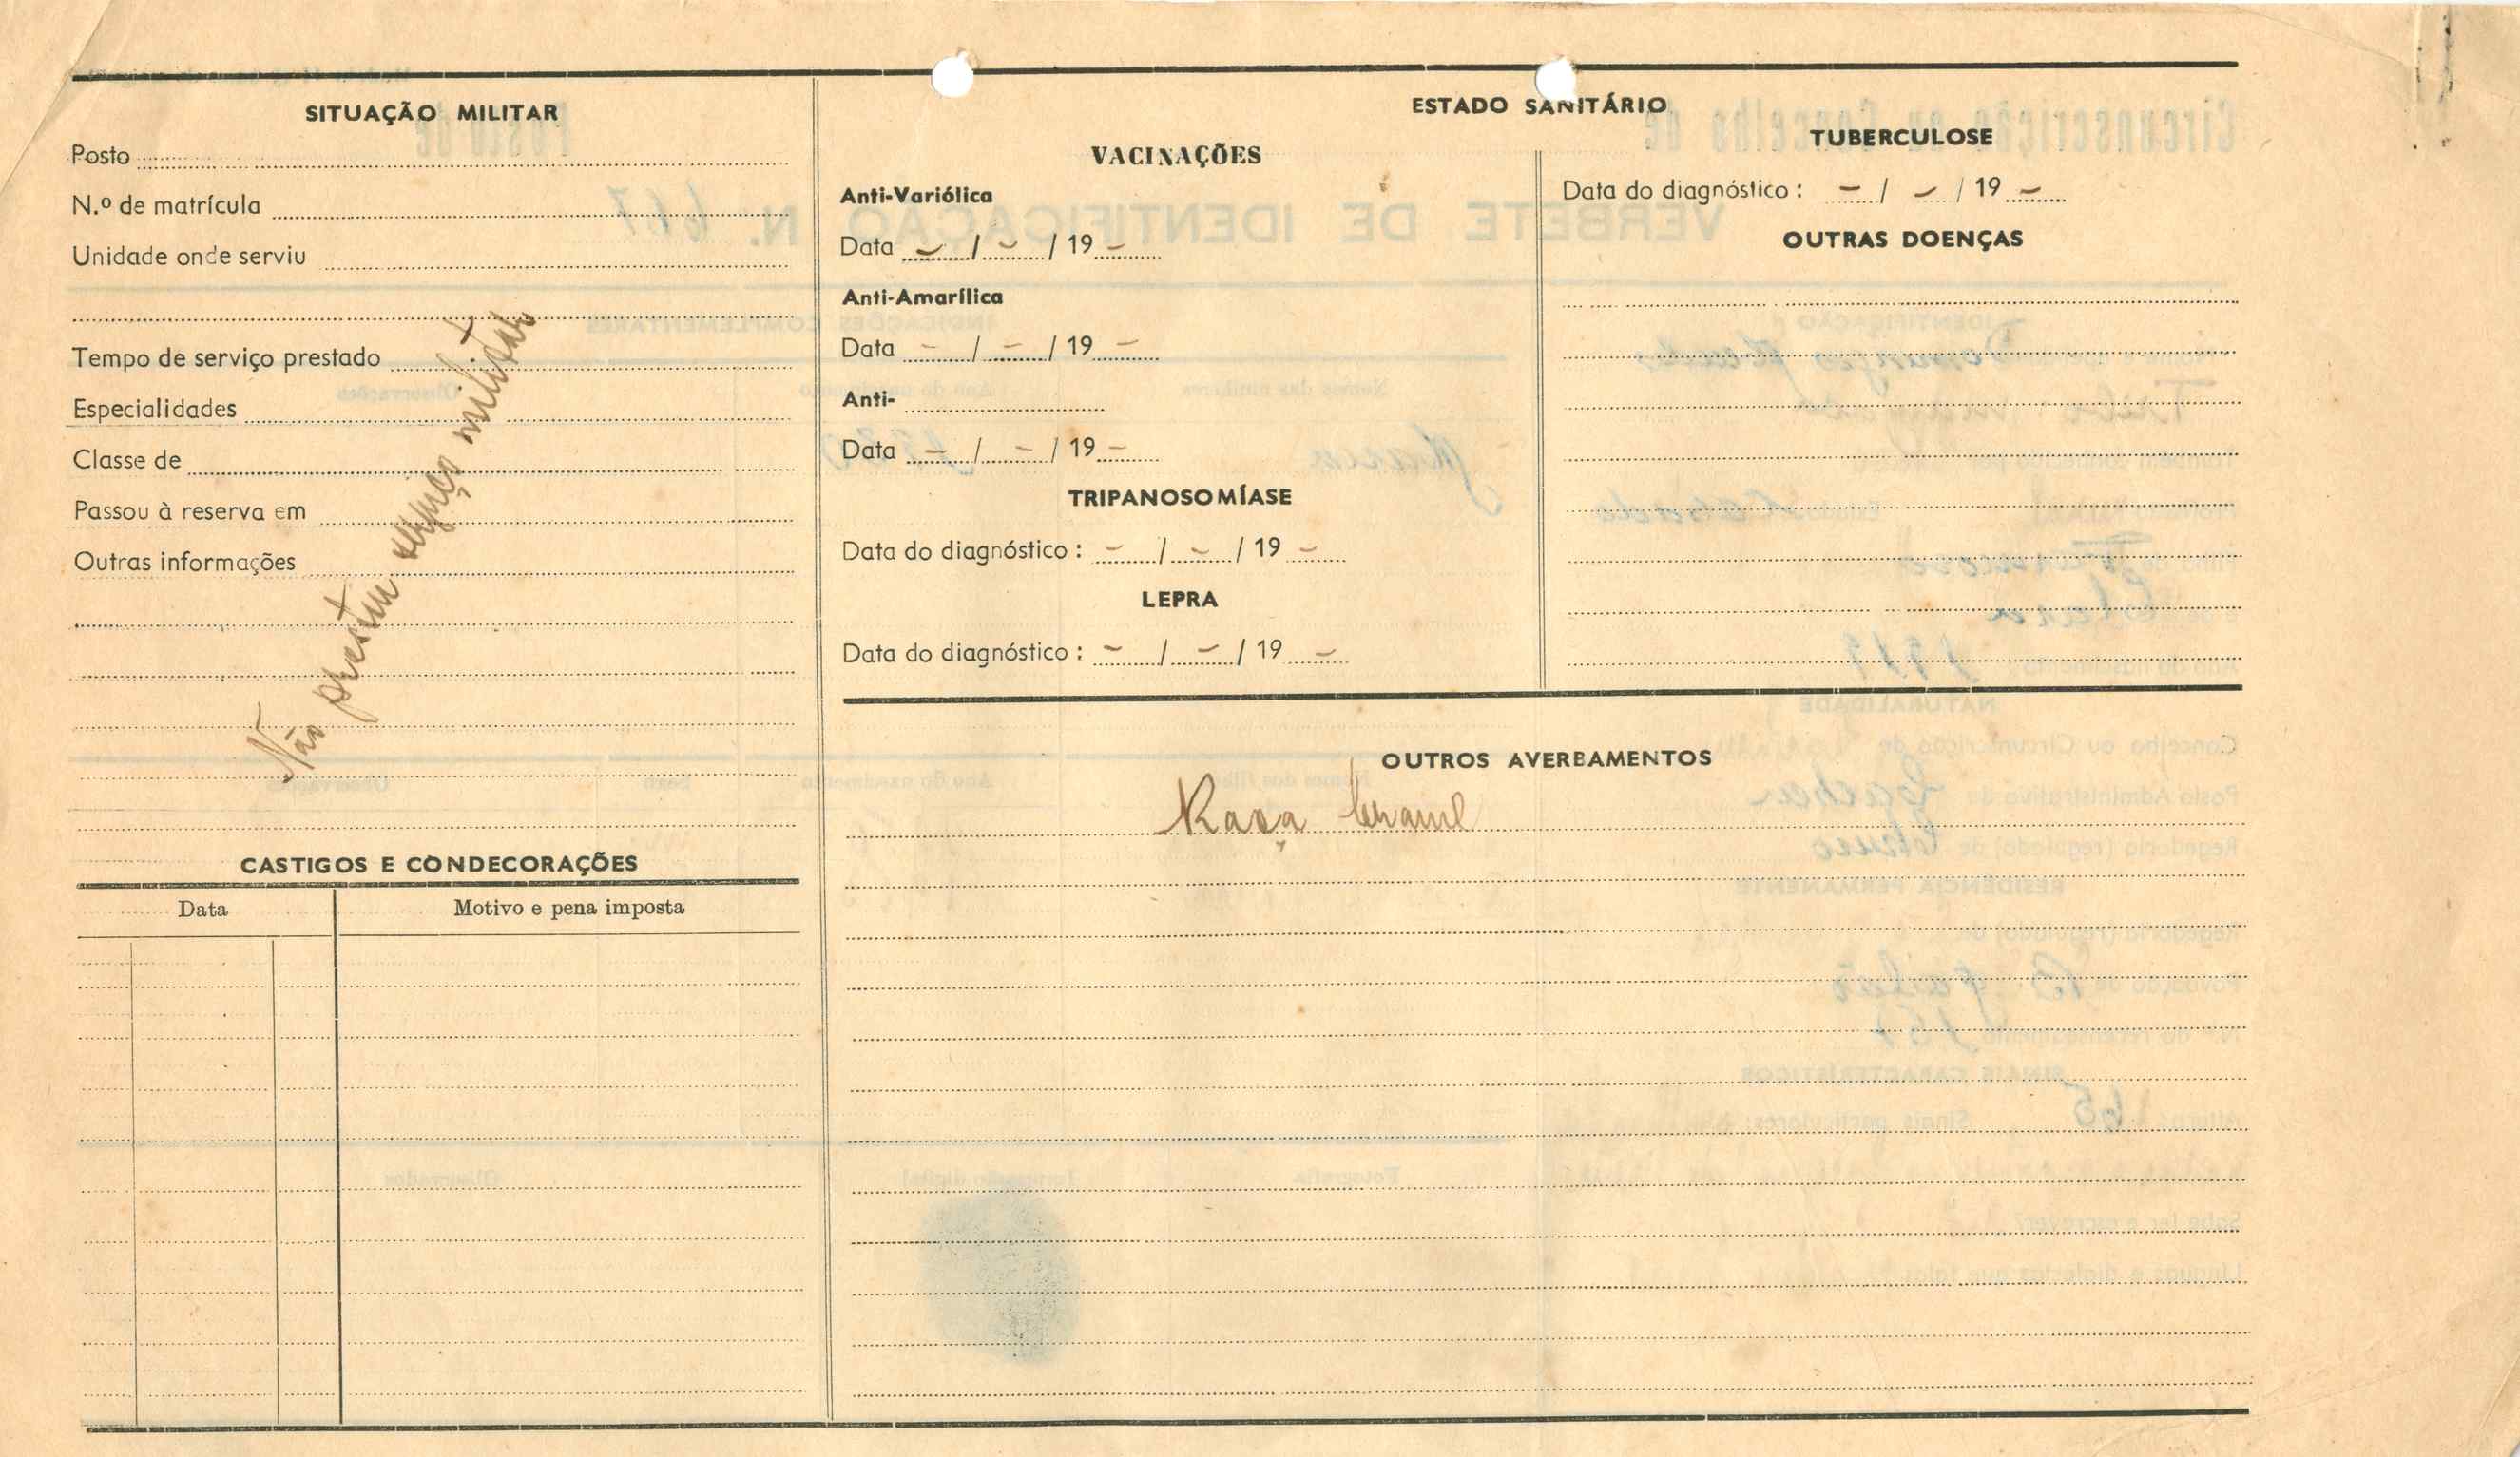 SITUAÇÃO MILITAR
Posto
N.º de matrícula
Unidade onde serviu
Tempo de serviço prestado
Especialidades
Classe de
Passou à reserva em
Outras informações
Não prestou serviço militar
CASTIGOS E CONDECORAÇÕES
Data Motivo e pena imposta
ESTADO SANITÁRIO
VACINAÇÕES
Anti-Variólica
Data - / - / 19 -
Anti-Amarílica
Data - / - / 19 -
Anti-
Data - / - / 19 -
TRIPANOSOMÍASE
Data do diagnóstico : - / - / 19 -
LEPRA
Data do diagnóstico : - / - / 19 -
TUBERCULOSE
Data do diagnóstico : - / - / 19 -
OUTRAS DOENÇAS
OUTROS AVERBAMENTOS
Raça